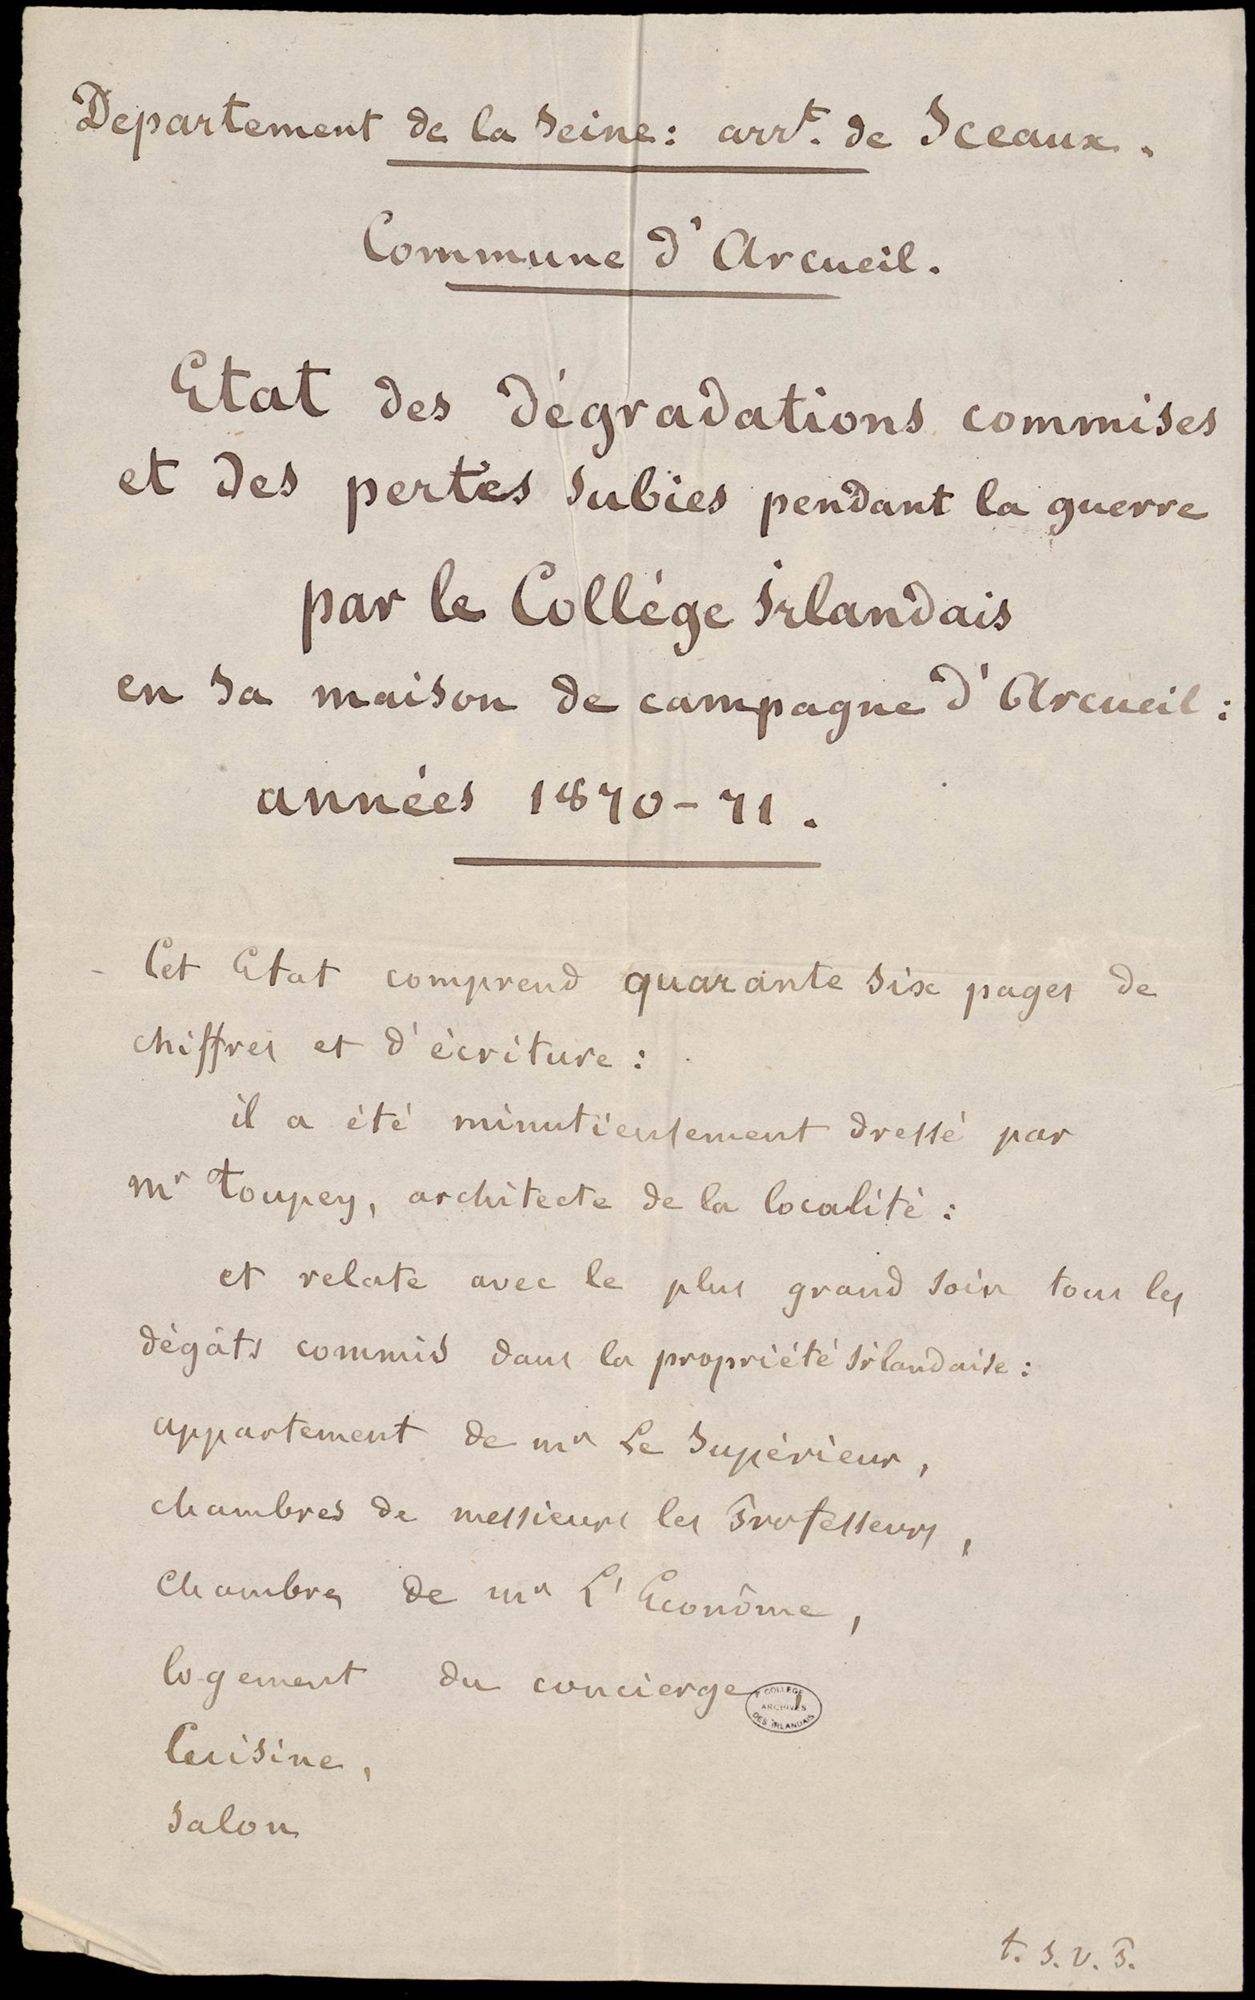 Departement de la Seine: arrt. de Sceaux.
Commune d'Arcueil.
Etat des dégradations commises
et des pertes subies pendant la guerre
par le Collége Irlandais
en sa maison de campagne d'Arcueil:
années 1870-71.
- Cet Etat comprend quarante six pages de
chiffres et d'écriture:
il a été minutieusement dressé par
Mr Toupey, architecte de la localité:
et relate avec le plus grand soin tous les
dégâts commis dans la propriété irlandaise:
appartement de Mr Le Supérieur,
chambres de messieurs les Professeurs,
chambre de Mr L'Econôme,
logement du concierge,
COLLEGE
ARCHIVES
DES IRLANDAIS
Cuisine,
Salon
t. S. v. P.